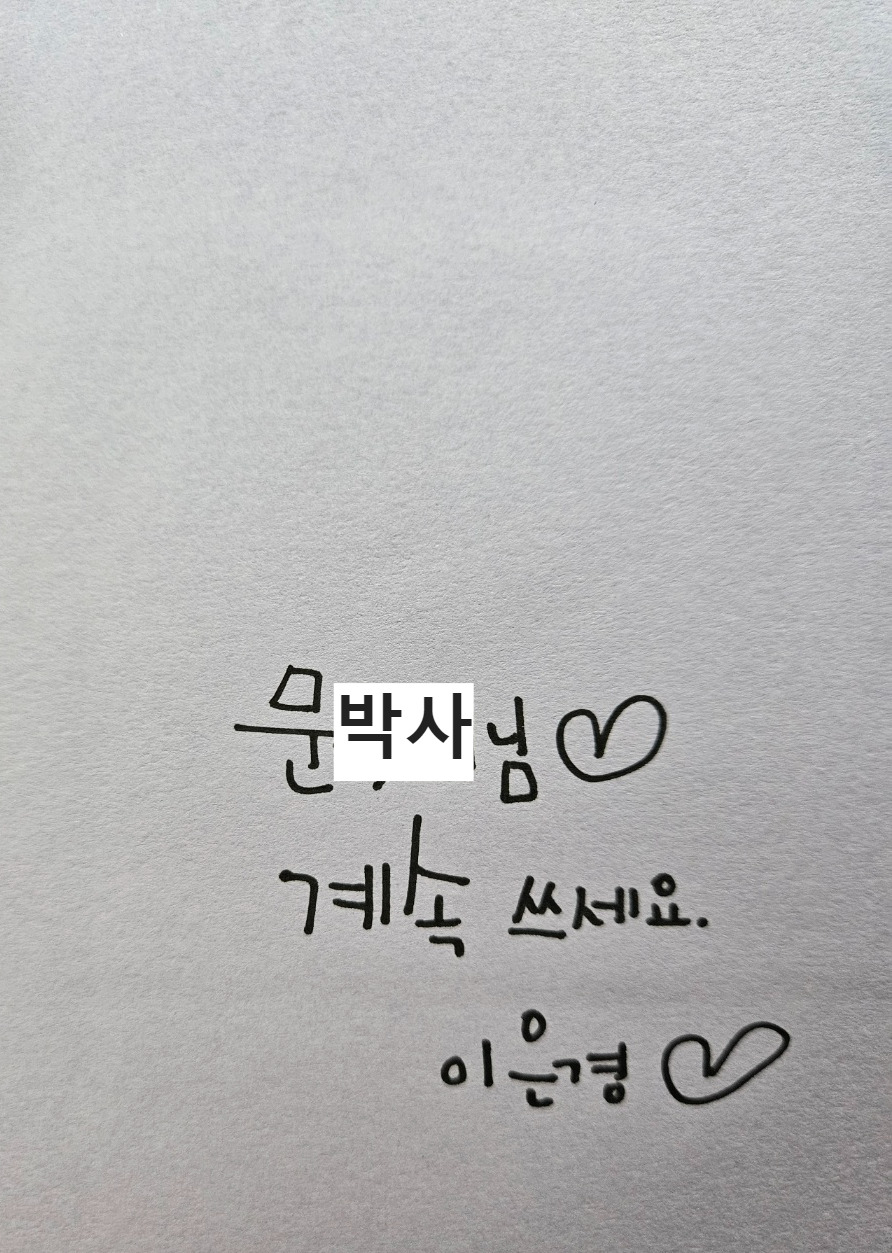 문박사님♡
계속 쓰세요.
이은경♡